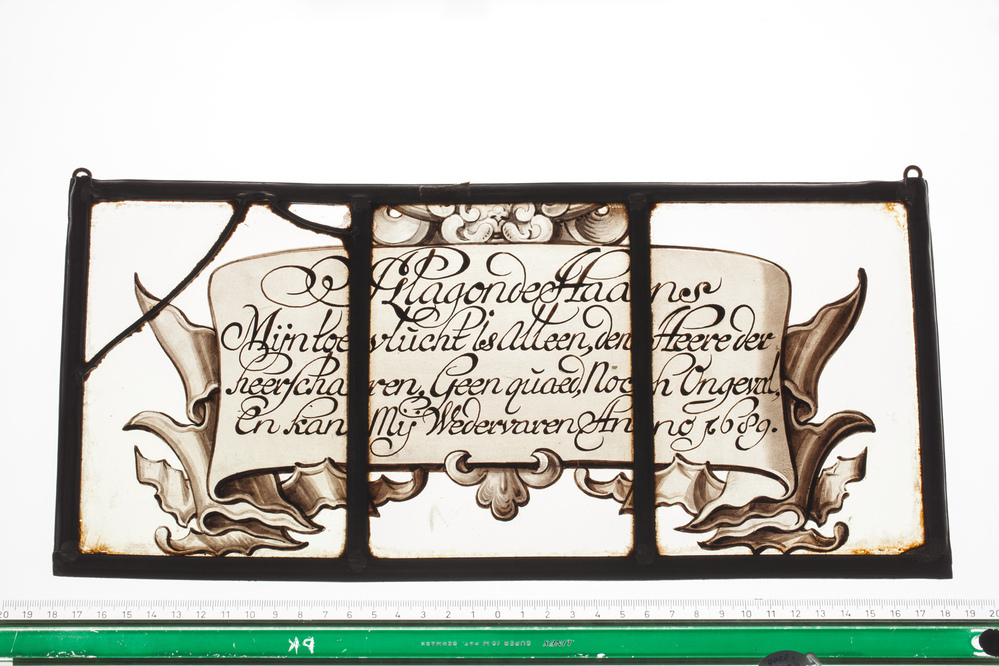 Haans
Mijn toevlucht is Alleen, den Heere der
heerschaaren, Geen quaed, Noch Ongeval,
En kan Mij Wedervaren Anno 1689.
20 19 18 17 16 15 14 13 12 11 10 9 8 7 6 5 4 3 2 1 0 1 2 3 4 5 6 7 8 9 10 11 12 13 14 15 16 17 18 19 20
DK
LINEX